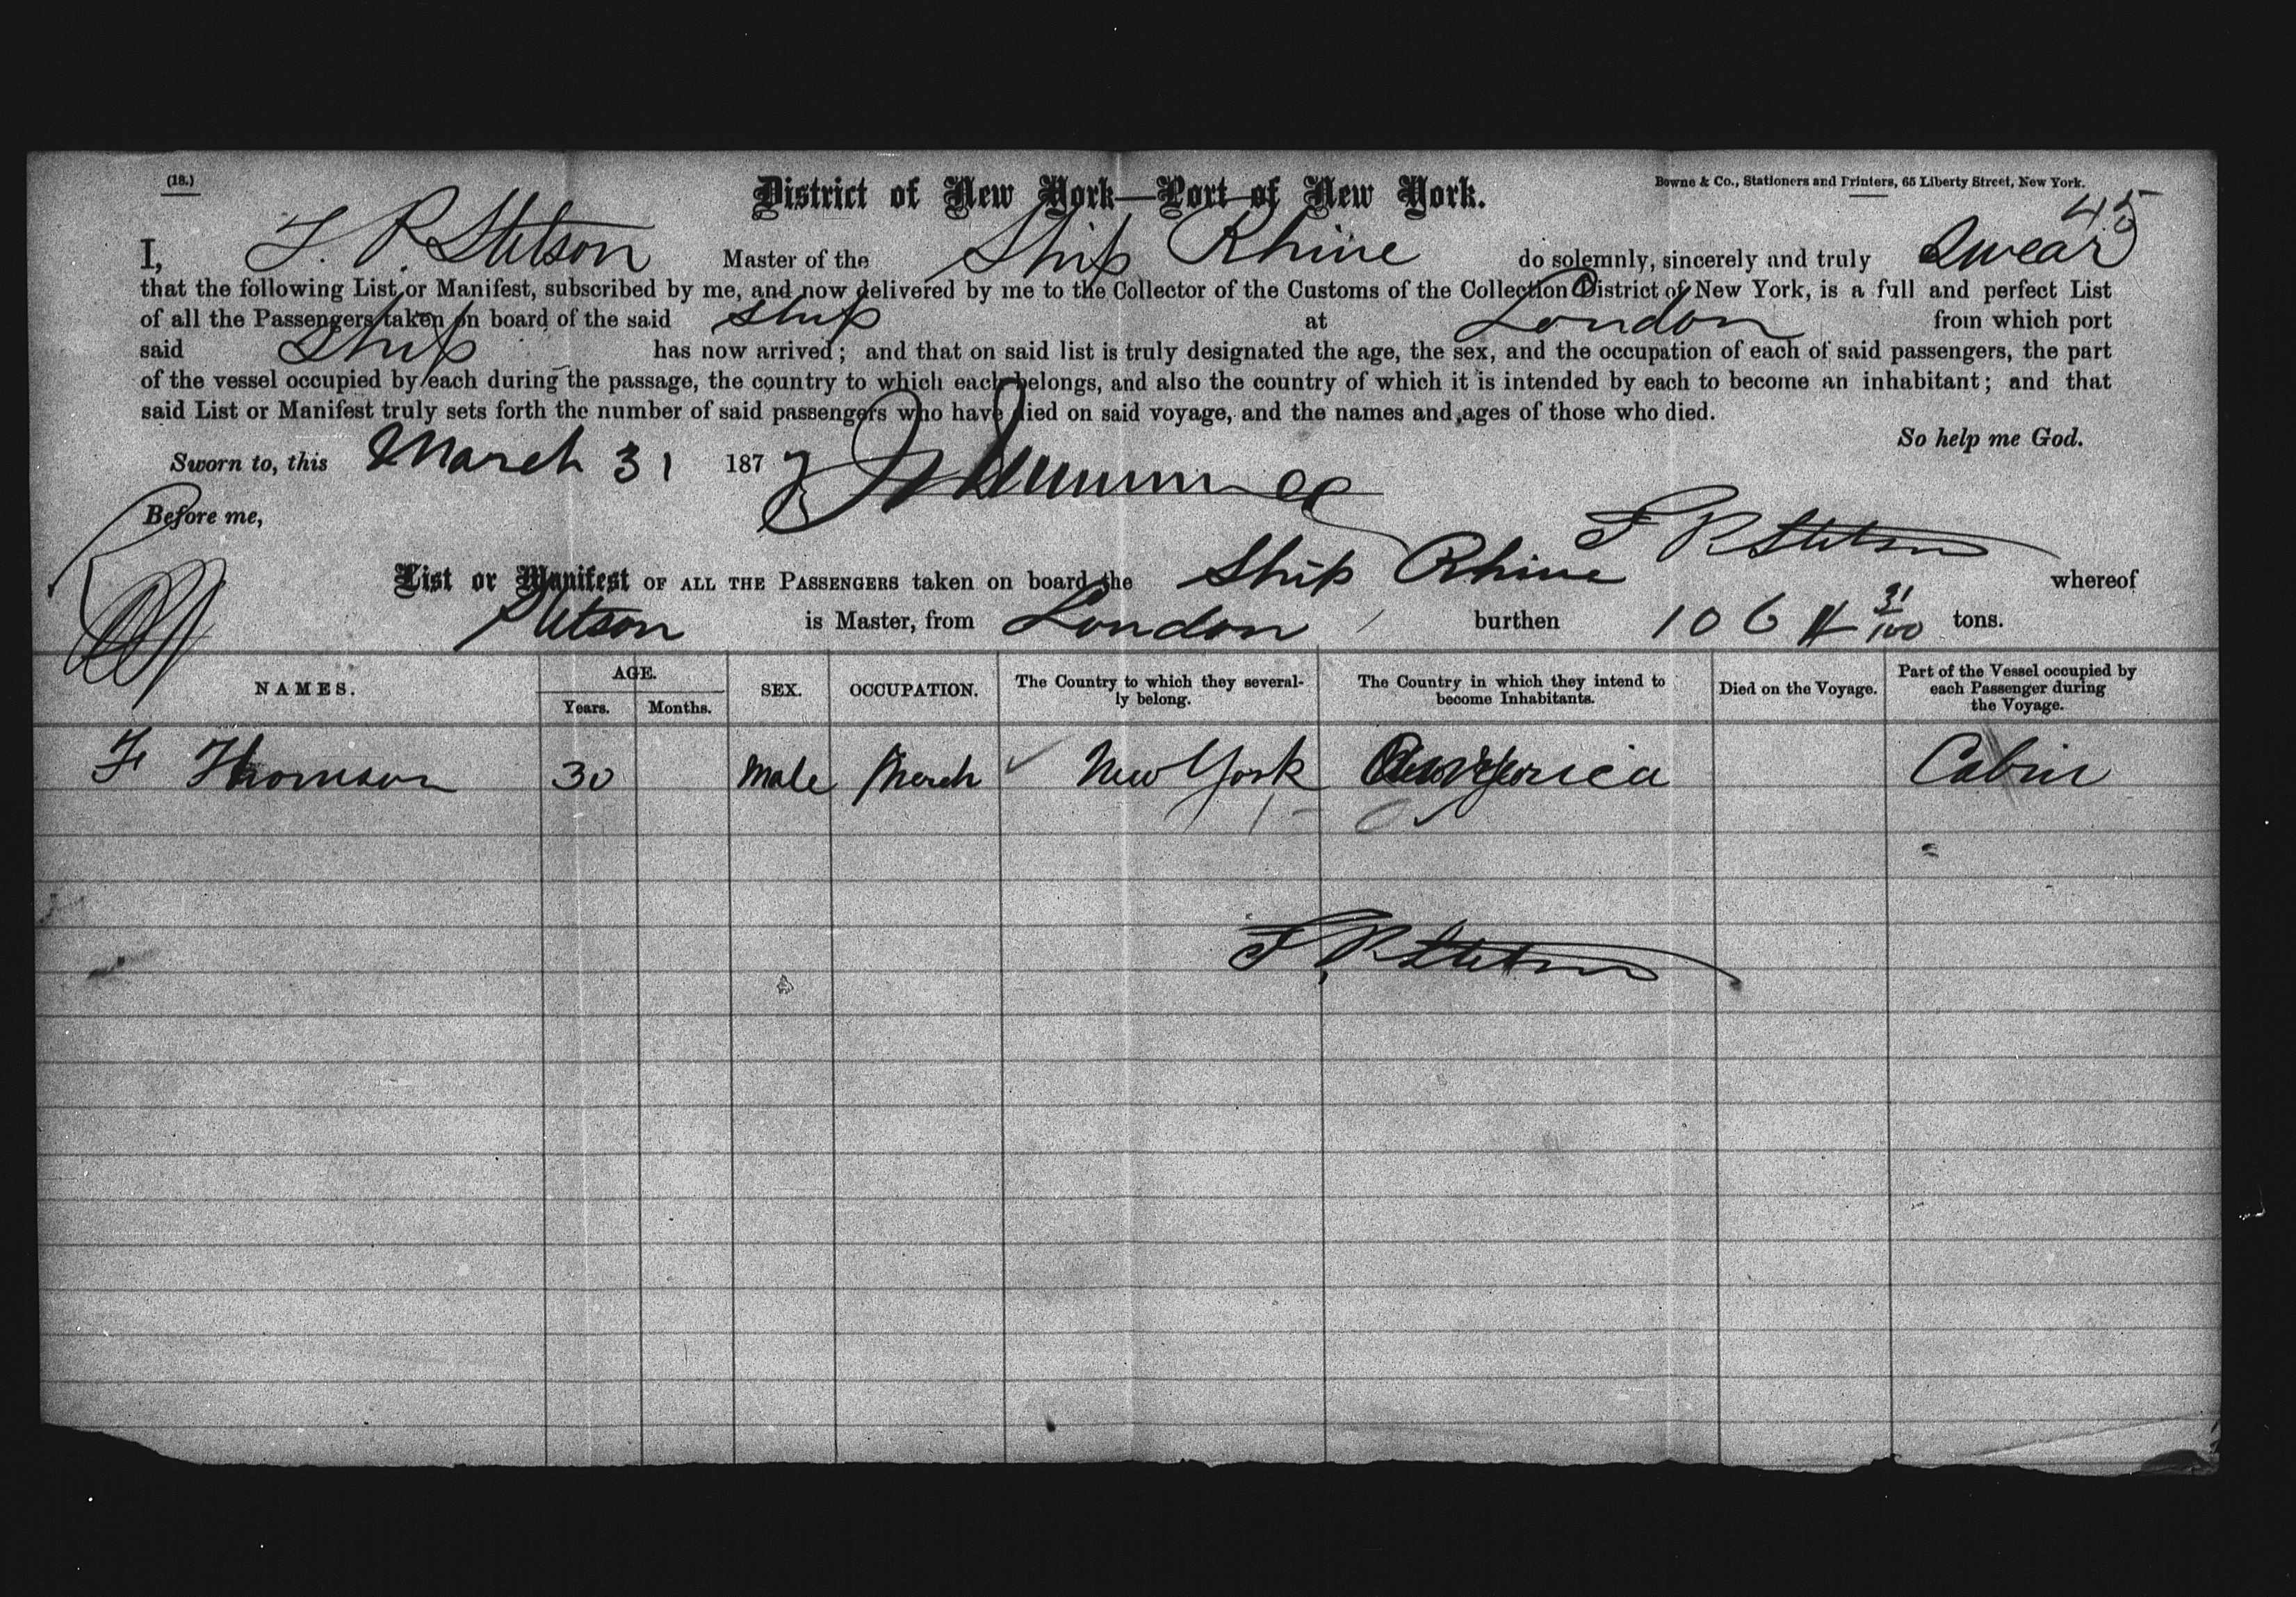 (18.)
District of New York—Port of New York.
Bowne & Co., Stationers and Printers, 65 Liberty Street, New York.
45
I, F. R. Stetson Master of the Ship Rhine do solemnly, sincerely and truly Swear
that the following List or Manifest, subscribed by me, and now delivered by me to the Collector of the Customs of the Collection District of New York, is a full and perfect List
of all the Passengers taken on board of the said Ship at London from which port
said Ship has now arrived; and that on said list is truly designated the age, the sex, and the occupation of each of said passengers, the part
of the vessel occupied by each during the passage, the country to which each belongs, and also the country of which it is intended by each to become an inhabitant; and that
said List or Manifest truly sets forth the number of said passengers who have died on said voyage, and the names and ages of those who died.
So help me God.
Sworn to, this March 31 1873
Before me,
F R Stetson
List or Manifest OF ALL THE PASSENGERS taken on board the Ship Rhine whereof
Stetson is Master, from London burthen 1064 31/100 tons.
NAMES. AGE. Years. Months. SEX. OCCUPATION. The Country to which they severally belong. The Country in which they intend to become Inhabitants. Died on the Voyage. Part of the Vessel occupied by each Passenger during the Voyage.
F Thomson 30 Male Merch New York America Cabin
F. R Stetson